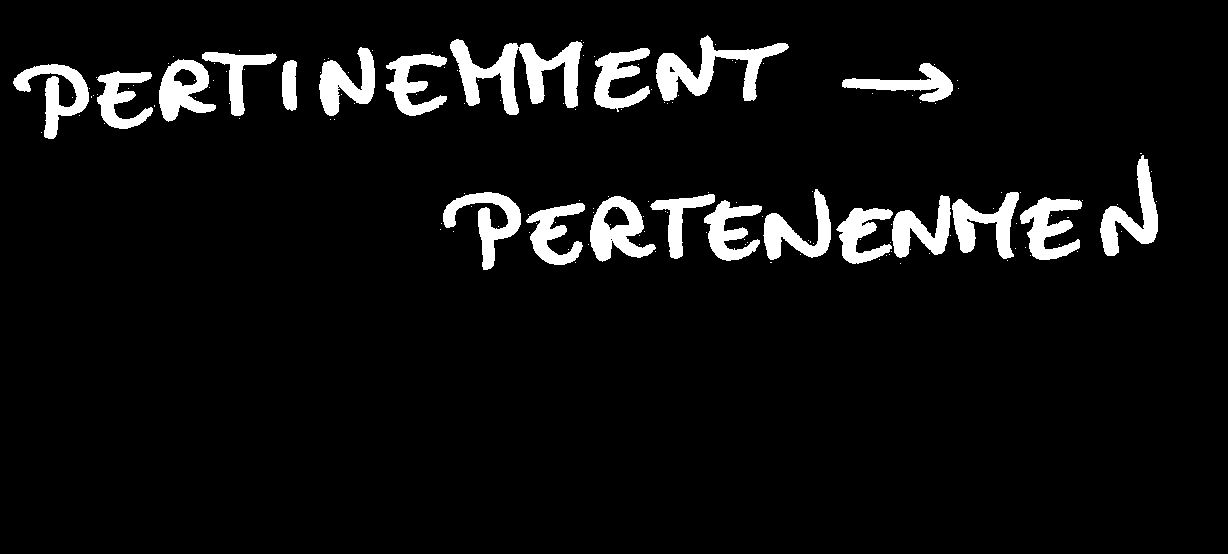 PERTINEMMENT →
PERTENENMEN